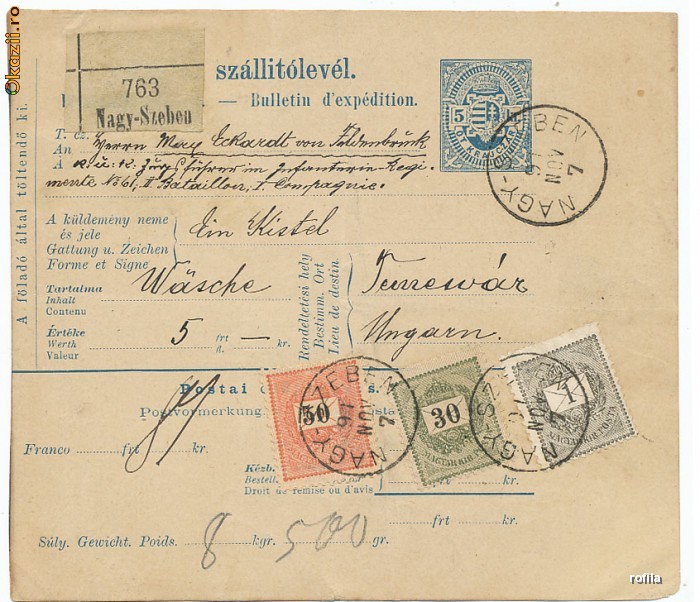 Okazii.ro
A föladó által töltendő ki.
763
Nagy-Szeben
szállitólevél.
— Bulletin d'expédition.
5 5
KRAJCZÁR
NAGY-SZEBEN
97
NOV
7
T. cz.
An
A
Herrn Mary Eckardt von
k. u. k. Zugsführer im Infanterie-Regi-
mente No 61, II. Bataillon, I. Compagnie.
A küldemény neme
és jele
Gattung u. Zeichen
Forme et Signe
Ein Kistel
Tartalma
Inhalt
Contenu
Wäsche
Rendeltetési hely
Bestimm. Ort
Lieu de destin
Temesvár
Ungarn.
Értéke
Werth
Valeur
5 frt — kr.
fl.
Postai
Postvormerkung.
50
30
1
MAGYAR KIR. POSTA
MAGYAR KIR. POSTA
NAGY-SZEBEN
97
NOV
7
NAGY-SZEBEN
NOV
Franco frt kr.
Kézb.
Bestell.
Droit de remise ou d'avis
frt kr.
Súly. Gewicht. Poids. 8 kgr. 500 gr.
rofila